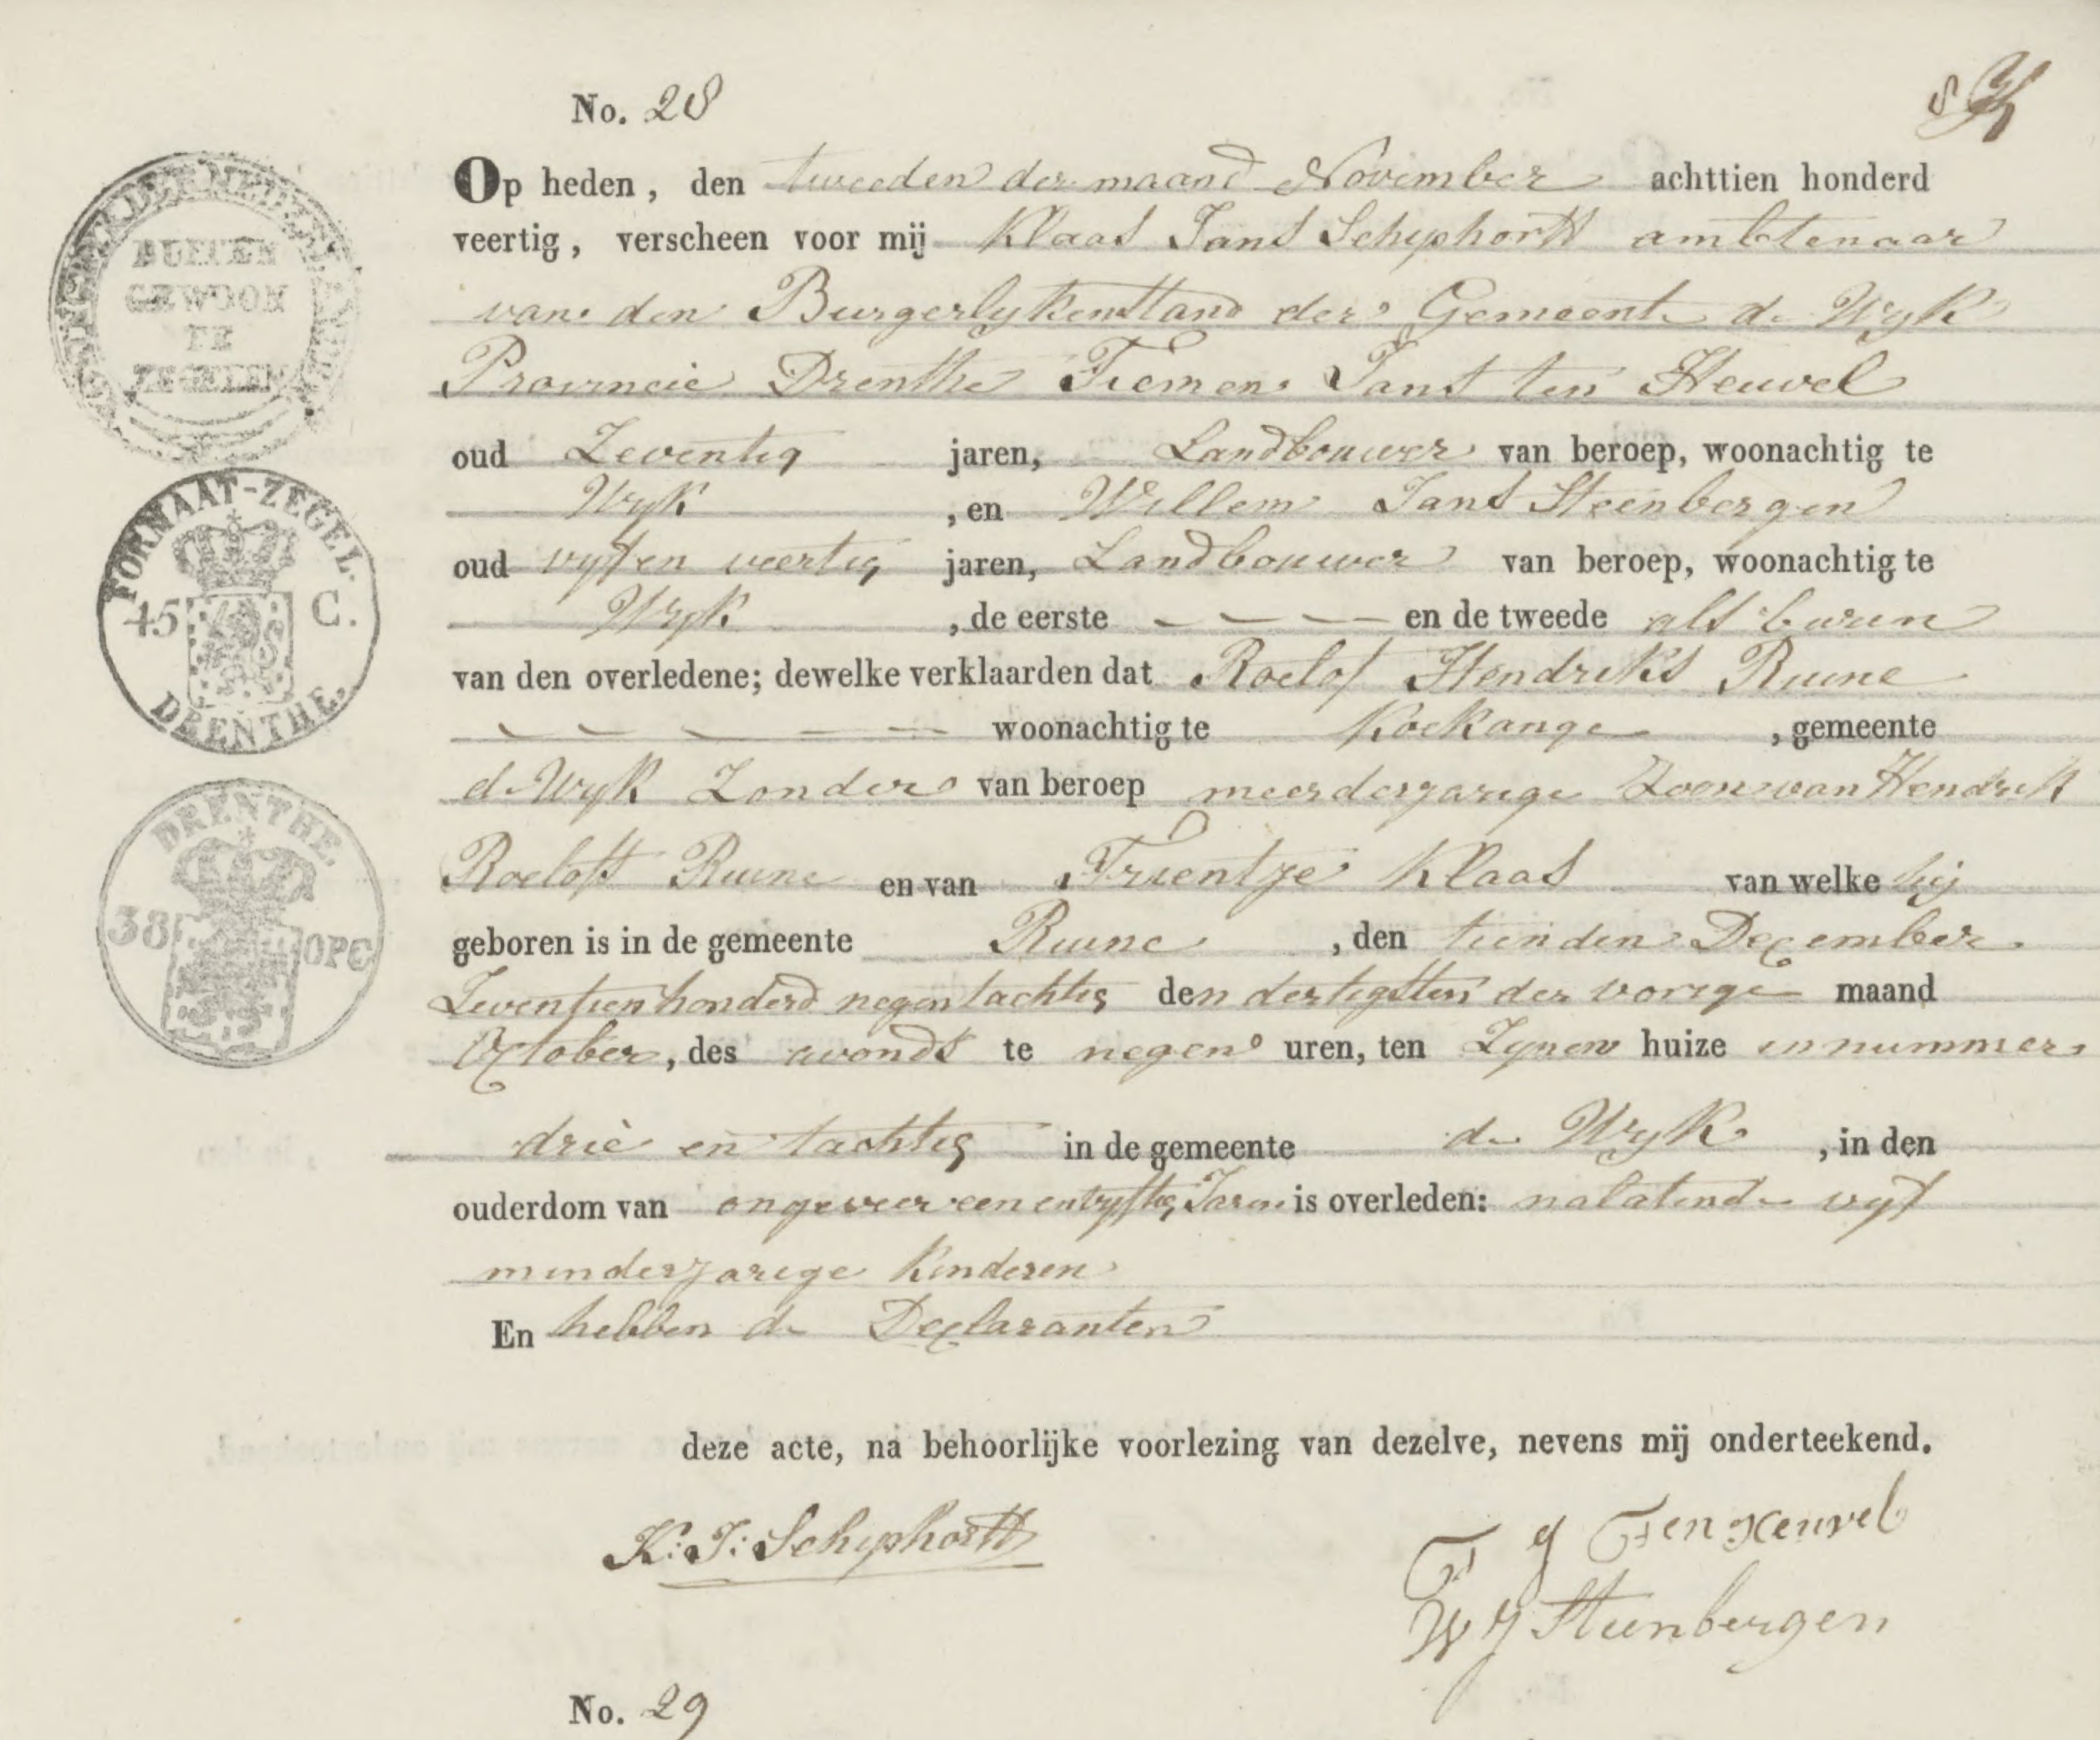 No. 28
Op heden, den tweeden der maand November achttien honderd
veertig, verscheen voor mij Klaas Jans Schiphorst ambtenaar
van den Burgerlykenstand der Gemeente de Wyk
Provincie Drenthe Tiemen Jans ten Heuvel
oud Zeventig jaren, Landbouwer van beroep, woonachtig te
Wyk , en Willem Jans Steenbergen
oud vyf en veertig jaren, Landbouwer van beroep, woonachtig te
Wyk , de eerste — — — — en de tweede als buren
van den overledene; dewelke verklaarden dat Roelof Hendriks Ruine
— — — — — — woonachtig te Koekange , gemeente
de Wyk Zonder van beroep meerderjarige Zoon van Hendrik
Roelofs Ruine en van Trientje Klaas van welke hij
geboren is in de gemeente Ruine , den tienden December
Zeventienhonderd negentachtig den dertigsten der vorige maand
October, des avonds te negen uren, ten Zynen huize in nummer
drie en tachtig in de gemeente de Wyk , in den
ouderdom van ongeveer een en vyftig Jaren is overleden: nalatende vyf
minderjarige Kinderen
En hebben de Declaranten
deze acte, na behoorlijke voorlezing van dezelve, nevens mij onderteekend.
K: J: Schiphorst
T J Ten Heuvel
W J Steenbergen
No. 29
BUITEN
GEWOON
DE
ZEGELEN
FORMAAT-ZEGEL.
45 C.
DRENTHE.
DRENTHE
38 OPC